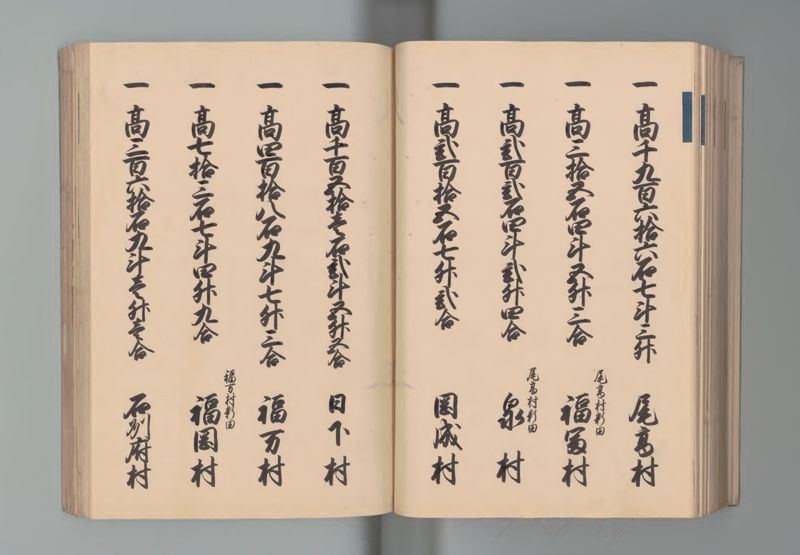 一 高千九百六拾六石七斗三升 尾高村
一 高三拾五石四斗五升三合 尾高村新田 福冨村
一 高弐百弐石四斗弐升四合 尾高村新田 泉村
一 高弐百拾五石七升弐合 岡成村
一 高千百五拾壱石弐斗五升五合 日下村
一 高四百拾八石九斗七升三合 福万村
一 高七拾三石七斗四升九合 福万村新田 福岡村
一 高三百六拾石九斗壱升壱合 石別府村